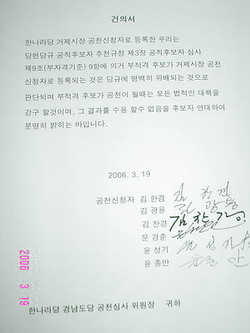 건의서
한나라당 거제시장 공천신청자로 등록한 우리는
당헌당규 공직후보자 추천규정 제3장 공직후보자 심사
제9조(부자격기준) 9항에 의거 부적격 후보가 거제시장 공천
신청자로 등록되는 것은 당규에 명백히 위배되는 것으로
판단되며 부적격 후보가 공천이 될때는 모든 법적인 대책을
강구 할것이며, 그 결과를 수용 할수 없음을 후보자 연대하여
분명히 밝히는 바입니다.
2006. 3. 19
공천신청자 김 한겸
김 광용
김 찬경 김찬경
문 경춘
윤 성기
윤 종만
한나라당 경남도당 공천심사 위원장 귀하
2006 3 19